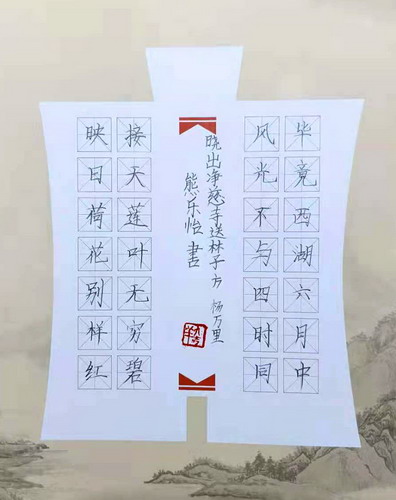 毕竟西湖六月中
风光不与四时同
晓出净慈寺送林子方 杨万里
熊乐怡書
接天莲叶无穷碧
映日荷花别样红